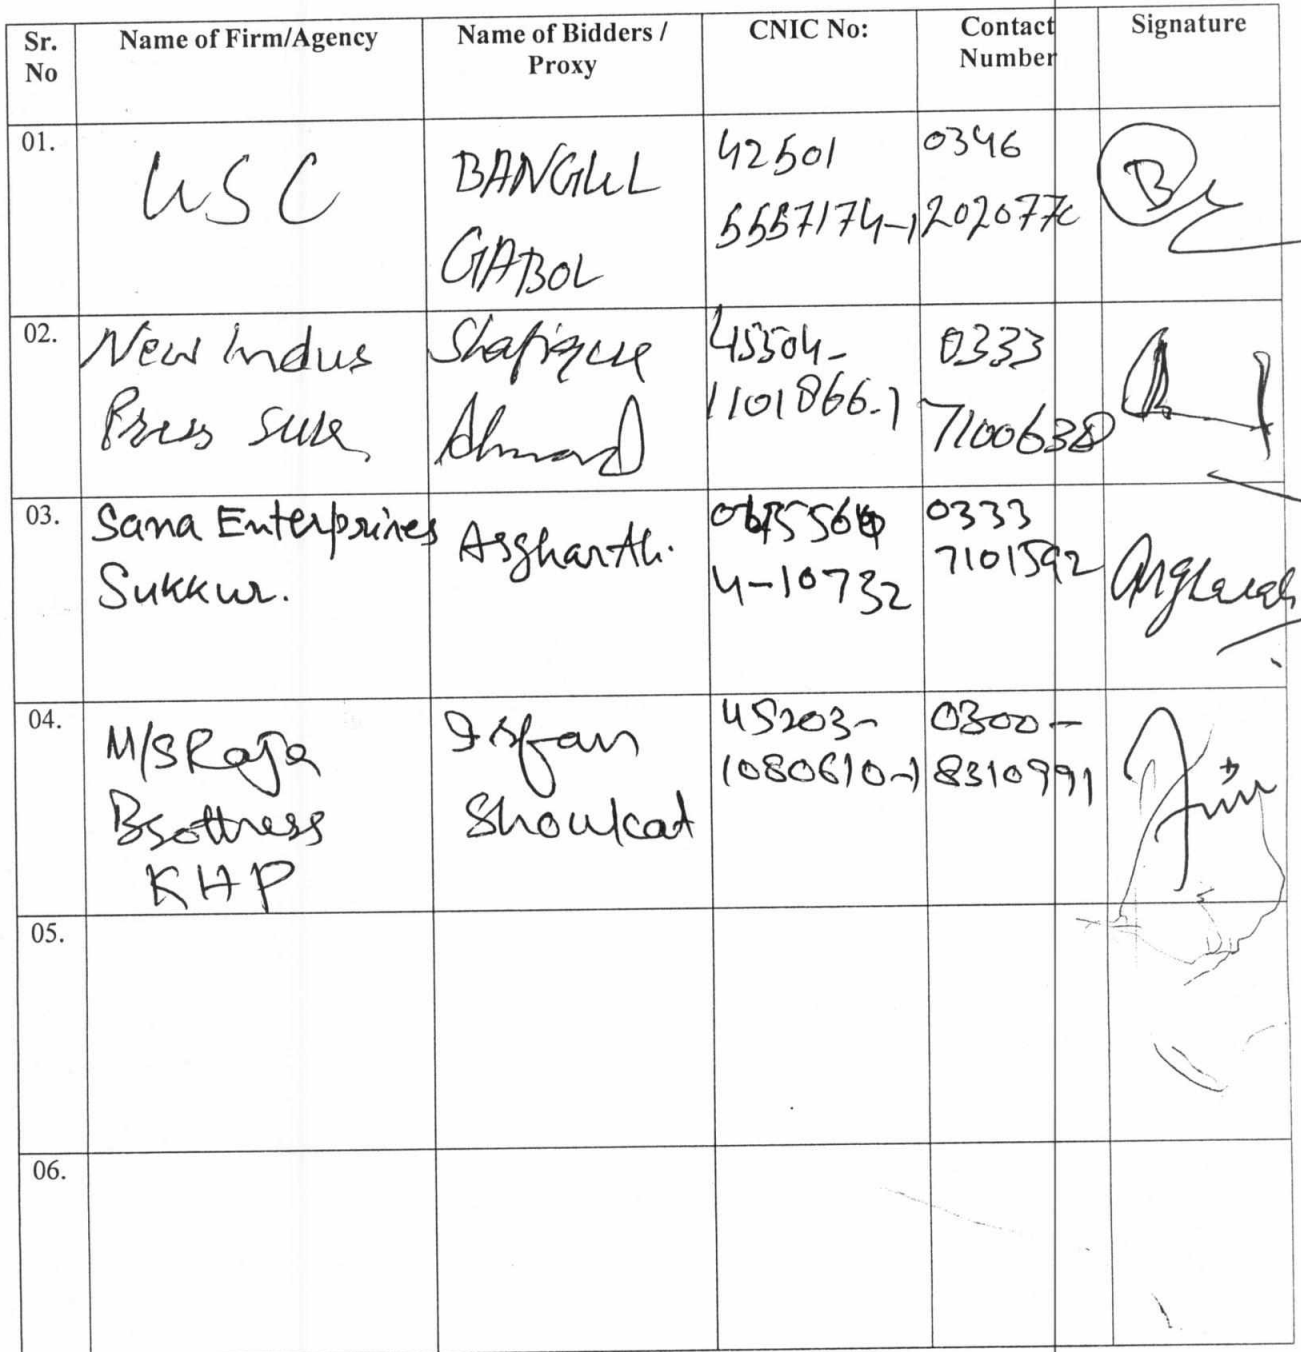 Sr. No
Name of Firm/Agency
Name of Bidders / Proxy
CNIC No:
Contact Number
Signature
01.
USC
BANGUL
GABOL
42501
5557174-1
0346
202077
02.
New Indus
Press
Shafique
Ahmad
45504-
1101866-1
0333
7100638
03.
Sana Enterprises
Sukkur.
Asghar Ali.
4-10732
0333
7101592
04.
M/S Raja
Brothress
KHP
Irfan
Shoukat
45203-
1080610-1
0300-
8310991
05.
06.